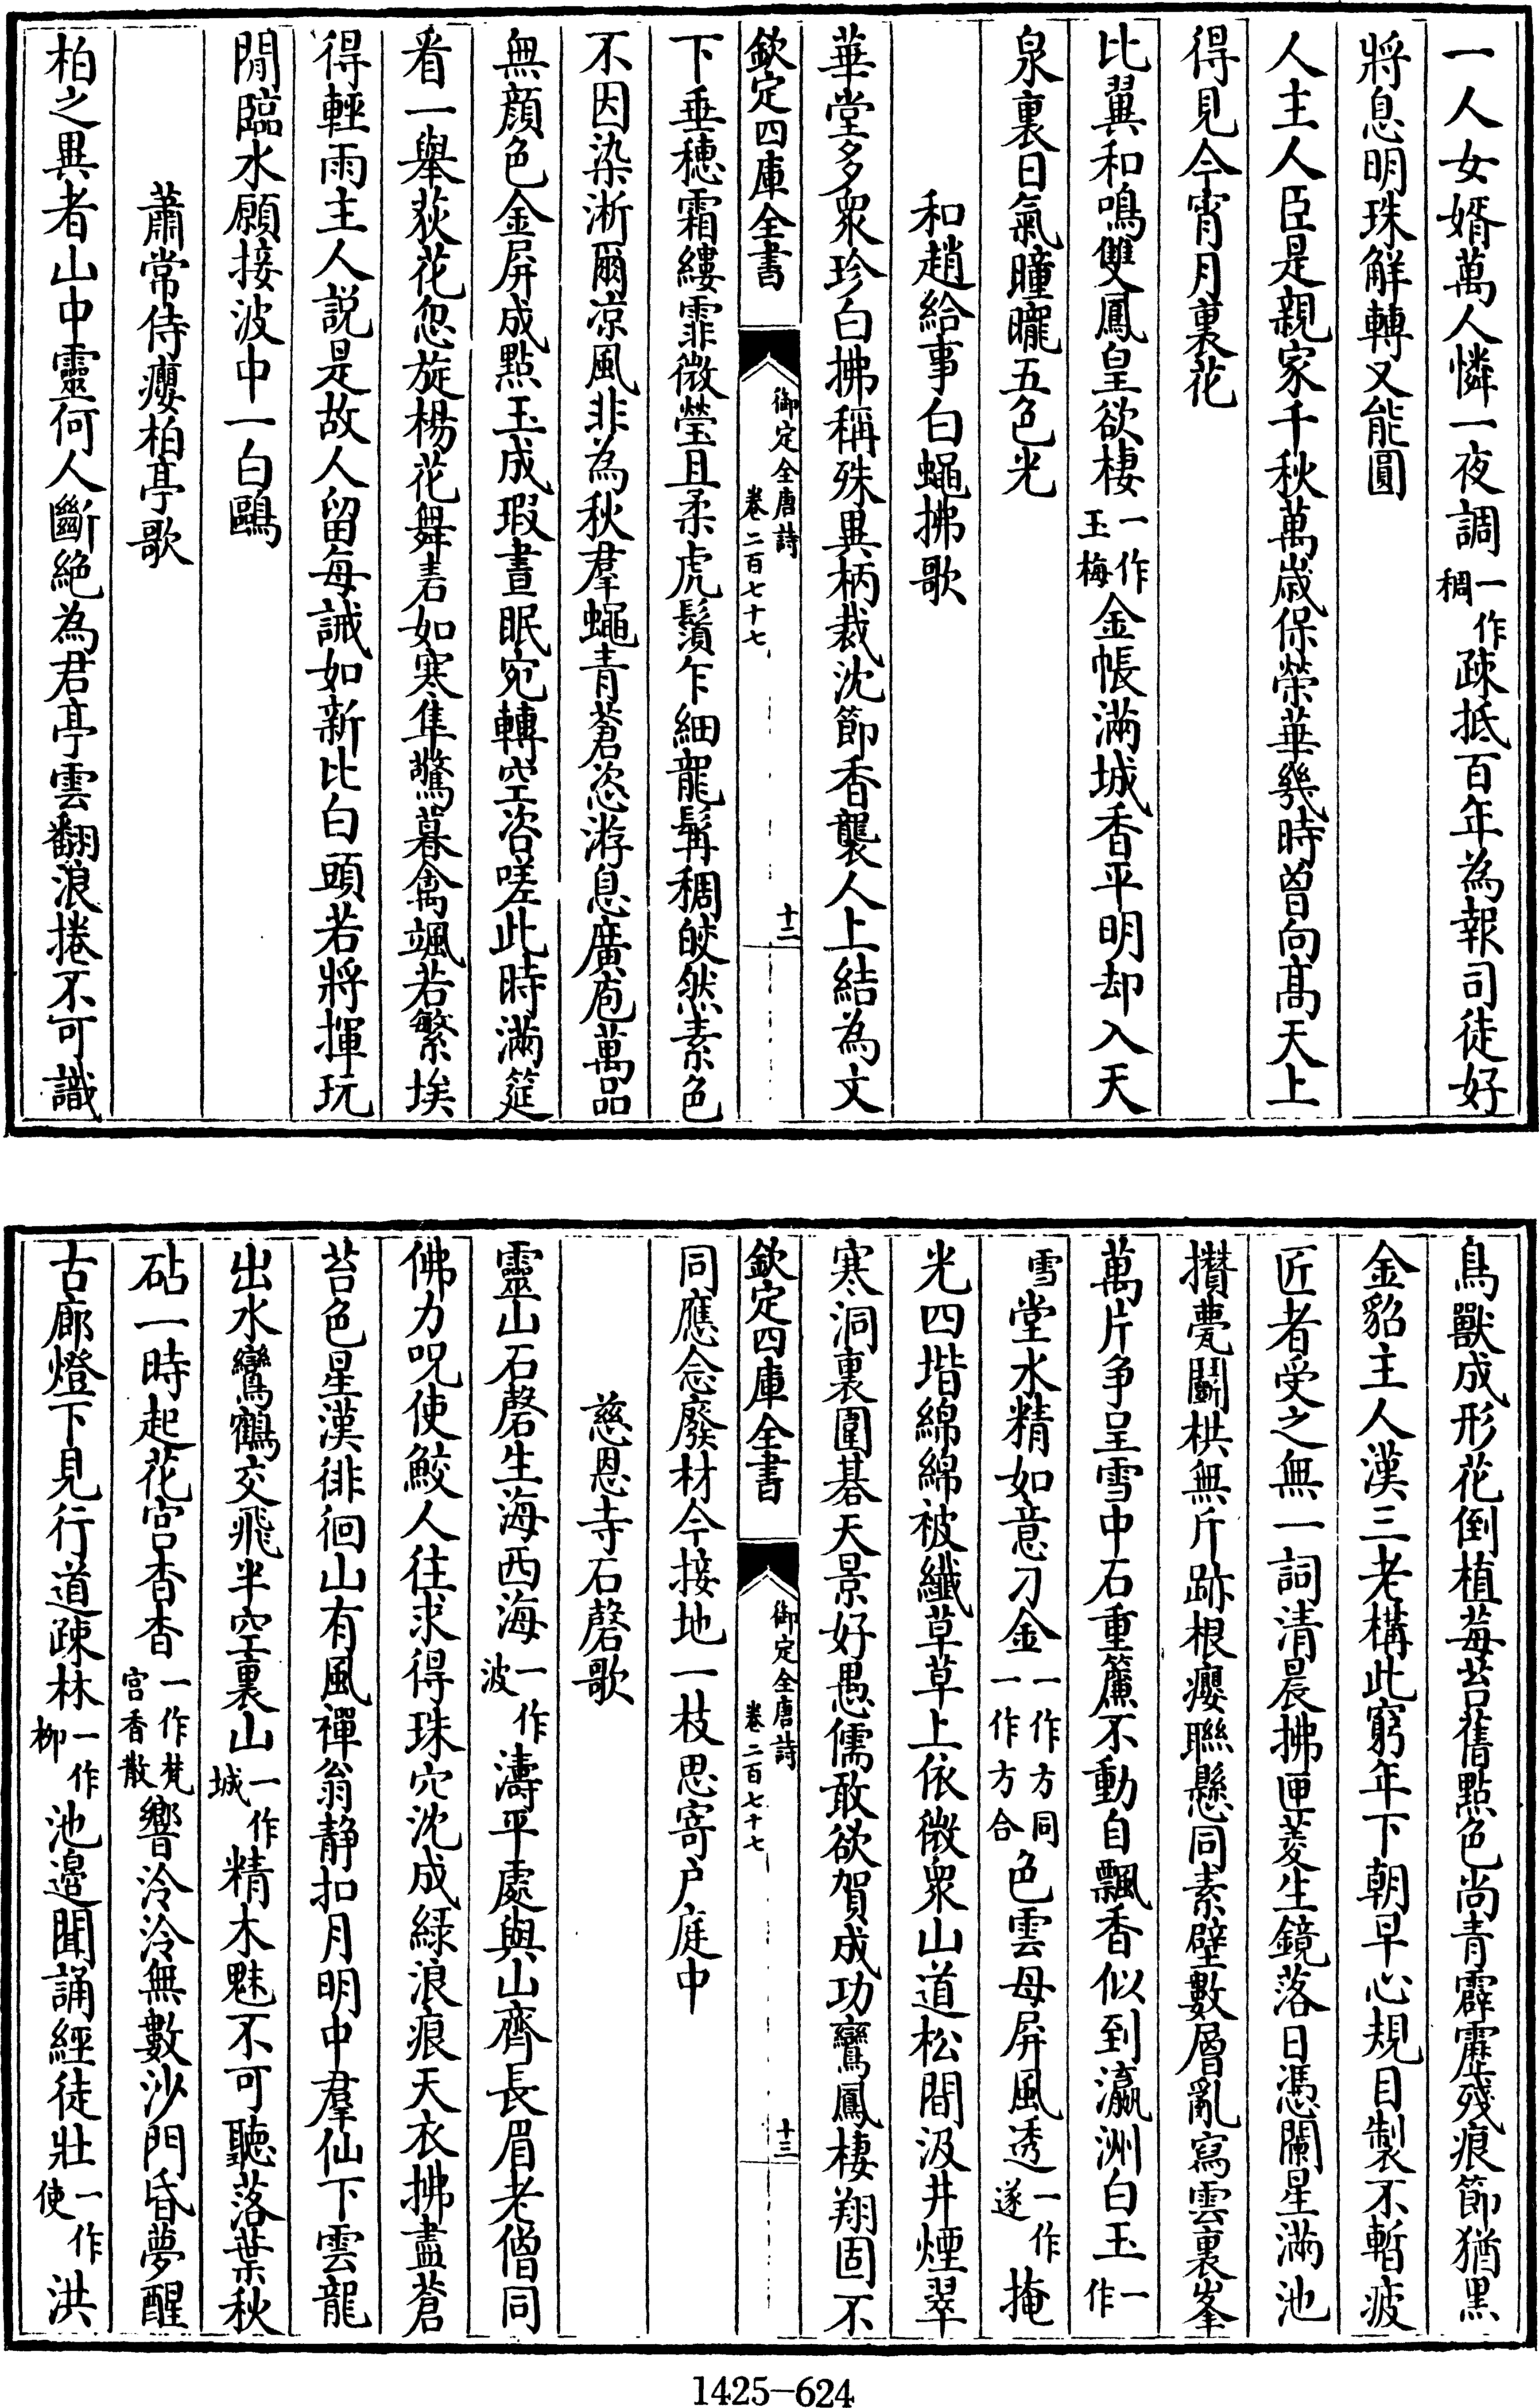 一人女婿萬人憐一夜調一作稠疎抵百年為報司徒好
將息明珠解轉又能圓
人主人臣是親家千秋萬歲保榮華幾時曾向髙天上
得見今宵月裏花
比翼和鳴雙鳳皇欲棲一作玉梅金帳滿城香平明却入天
泉裏日氣曈曨五色光
和趙給事白蠅拂歌
華堂多衆珍白拂稱殊異柄裁沈節香襲人上結為文
欽定四庫全書
御定全唐詩
卷二百七十七
十二
下垂穗霜縷霏微瑩且柔虎鬚乍細龍髯稠皎然素色
不因染淅爾凉風非為秋羣蠅青蒼恣游息廣庖萬品
無顔色金屏成點玉成瑕晝眠宛轉空咨嗟此時滿筵
看一舉荻花忽旋楊花舞砉如寒隼驚暮禽颯若繁埃
得輕雨主人説是故人留每誡如新比白頭若將揮玩
閒臨水願接波中一白鷗
蕭常侍癭柏亭歌
柏之異者山中靈何人斷絶為君亭雲翻浪捲不可識
鳥獸成形花倒植莓苔舊點色尚青霹靂殘痕節猶黑
金貂主人漢三老構此窮年下朝早心規目製不暫疲
匠者受之無一詞清晨拂匣菱生鏡落日憑闌星滿池
攢甍鬭栱無斤跡根癭聯懸同素壁數層亂寫雲裏峯
萬片爭呈雪中石重簾不動自飄香似到瀛洲白玉一作
雪堂水精如意刀金一作方同一作方合色雲母屏風透一作遂掩
光四堦綿綿被纖草草上依微衆山道松間汲井煙翠
寒洞裏圍碁天景好愚儒敢欲賀成功鸞鳳棲翔固不
欽定四庫全書
御定全唐詩
卷二百七十七
十三
同應念廢材今接地一枝思寄户庭中
慈恩寺石磬歌
靈山石磬生海西海一作波濤平處與山齊長眉老僧同
佛力呪使鮫人往求得珠穴沈成緑浪痕天衣拂盡蒼
苔色星漢徘徊山有風禪翁静扣月明中羣仙下雲龍
出水鸞鶴交飛半空裏山一作城精木魅不可聽落葉秋
砧一時起花宫杳杳一作梵宫香散響泠泠無數沙門昏夢醒
古廊燈下見行道疎林一作柳池邉聞誦經徒壯一作使洪
1425—624